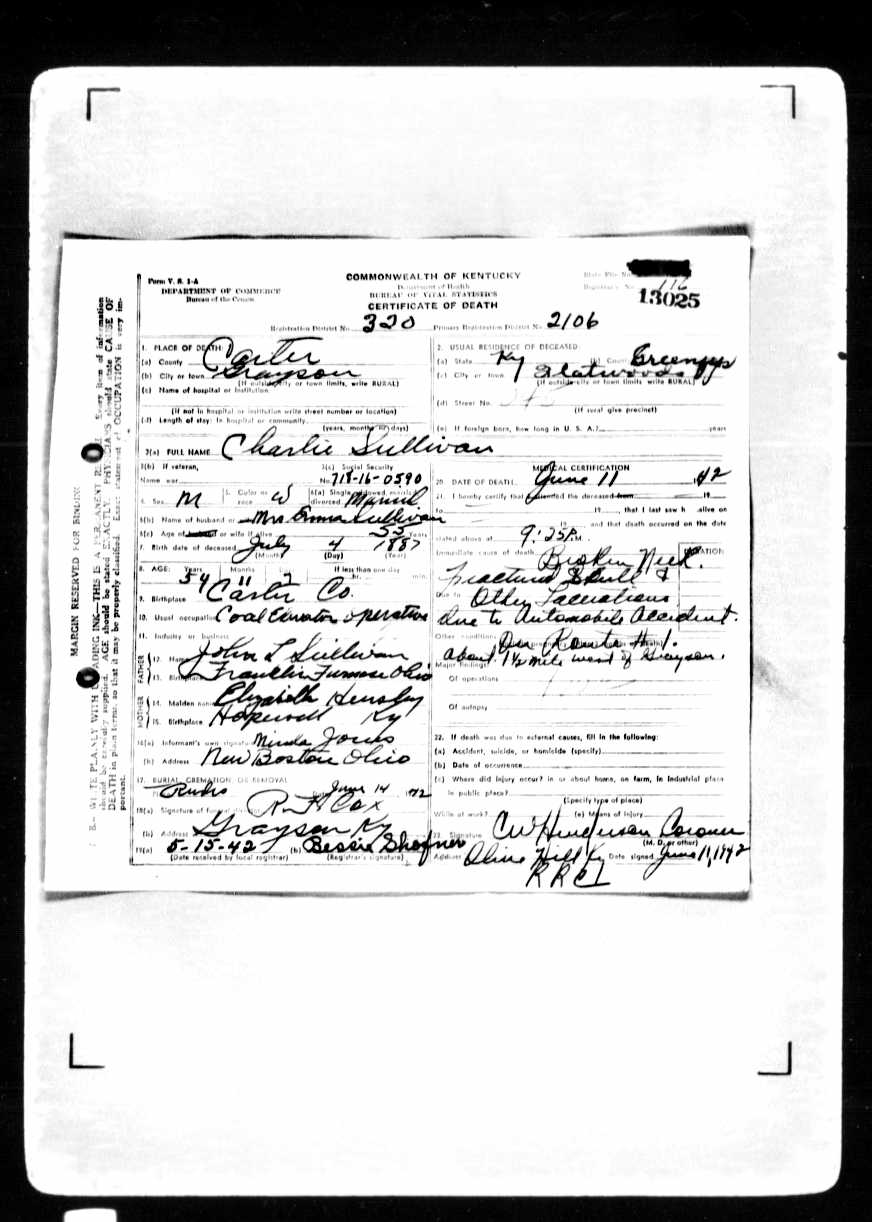 Form V. S. 1-A
DEPARTMENT OF COMMERCE
Bureau of the Census
COMMONWEALTH OF KENTUCKY
Department of Health
BUREAU OF VITAL STATISTICS
CERTIFICATE OF DEATH
State File No.
Registrar's No. 116
13025
Registration District No. 320 Primary Registration District No. 2106
MARGIN RESERVED FOR BINDING
1. PLACE OF DEATH:
(a) County Carter
(b) City or town Grayson
(If outside city or town limits, write RURAL)
(c) Name of hospital or institution
(If not in hospital or institution write street number or location)
(d) Length of stay: In hospital or community
(years, months or days)
2. USUAL RESIDENCE OF DECEASED:
(a) State Ky (b) County Greenup
(c) City or town Flatwoods
(If outside city or town limits write RURAL)
(d) Street No.
(If rural give precinct)
(e) If foreign born, how long in U. S. A.? years
3(a) FULL NAME Charlie Sullivan
3(b) If veteran,
Name war
3(c) Social Security
No. 718-16-0590
4. Sex M 5. Color or race W 6(a) Single, widowed, married, divorced Married
6(b) Name of husband or Mrs Emma Sullivan
6(c) Age of husband or wife if alive 55 Years
7. Birth date of deceased July 4 1887
(Month) (Day)
8. AGE: Years Months Days If less than one day
54 11 hr. min.
9. Birthplace Carter Co.
10. Usual occupation Coal Elevator operative
11. Industry or business
FATHER
12. Name John L Sullivan
13. Birthplace Franklin Furnace Ohio
MOTHER
14. Maiden name Elizabeth Hensley
15. Birthplace Hopewell Ky
16(a) Informant's own signature Minda Jones
(b) Address New Boston Ohio
17. BURIAL, CREMATION OR REMOVAL
June 14 1942
18(a) Signature of funeral director R. H Cox
(b) Address Grayson Ky
19(a) 5-15-42 (b) Bessie
(Date received by local registrar) (Registrar's signature)
MEDICAL CERTIFICATION
20. DATE OF DEATH June 11 1942
21. I hereby certify that I attended the deceased from 19
to 19 , that I last saw h alive on
19 and that death occurred on the date
stated above at 9:25P.M.
Immediate cause of death Broken Neck.
DURATION
Fractured Skull &
Due to Other Lacerations
due to Automobile Accident.
Other conditions On Route #1.
about 1½ mile west of Grayson.
Major findings:
Of operations
Of autopsy
22. If death was due to external causes, fill in the following:
(a) Accident, suicide, or homicide (specify)
(b) Date of occurrence
(c) Where did injury occur? in or about home, on farm, in industrial place
in public place?
(Specify type of place)
While at work? (e) Means of injury
23. Signature CW Henderson Coroner
(M. D. or other)
Address Olive Hill Ky Date signed June 11, 1942